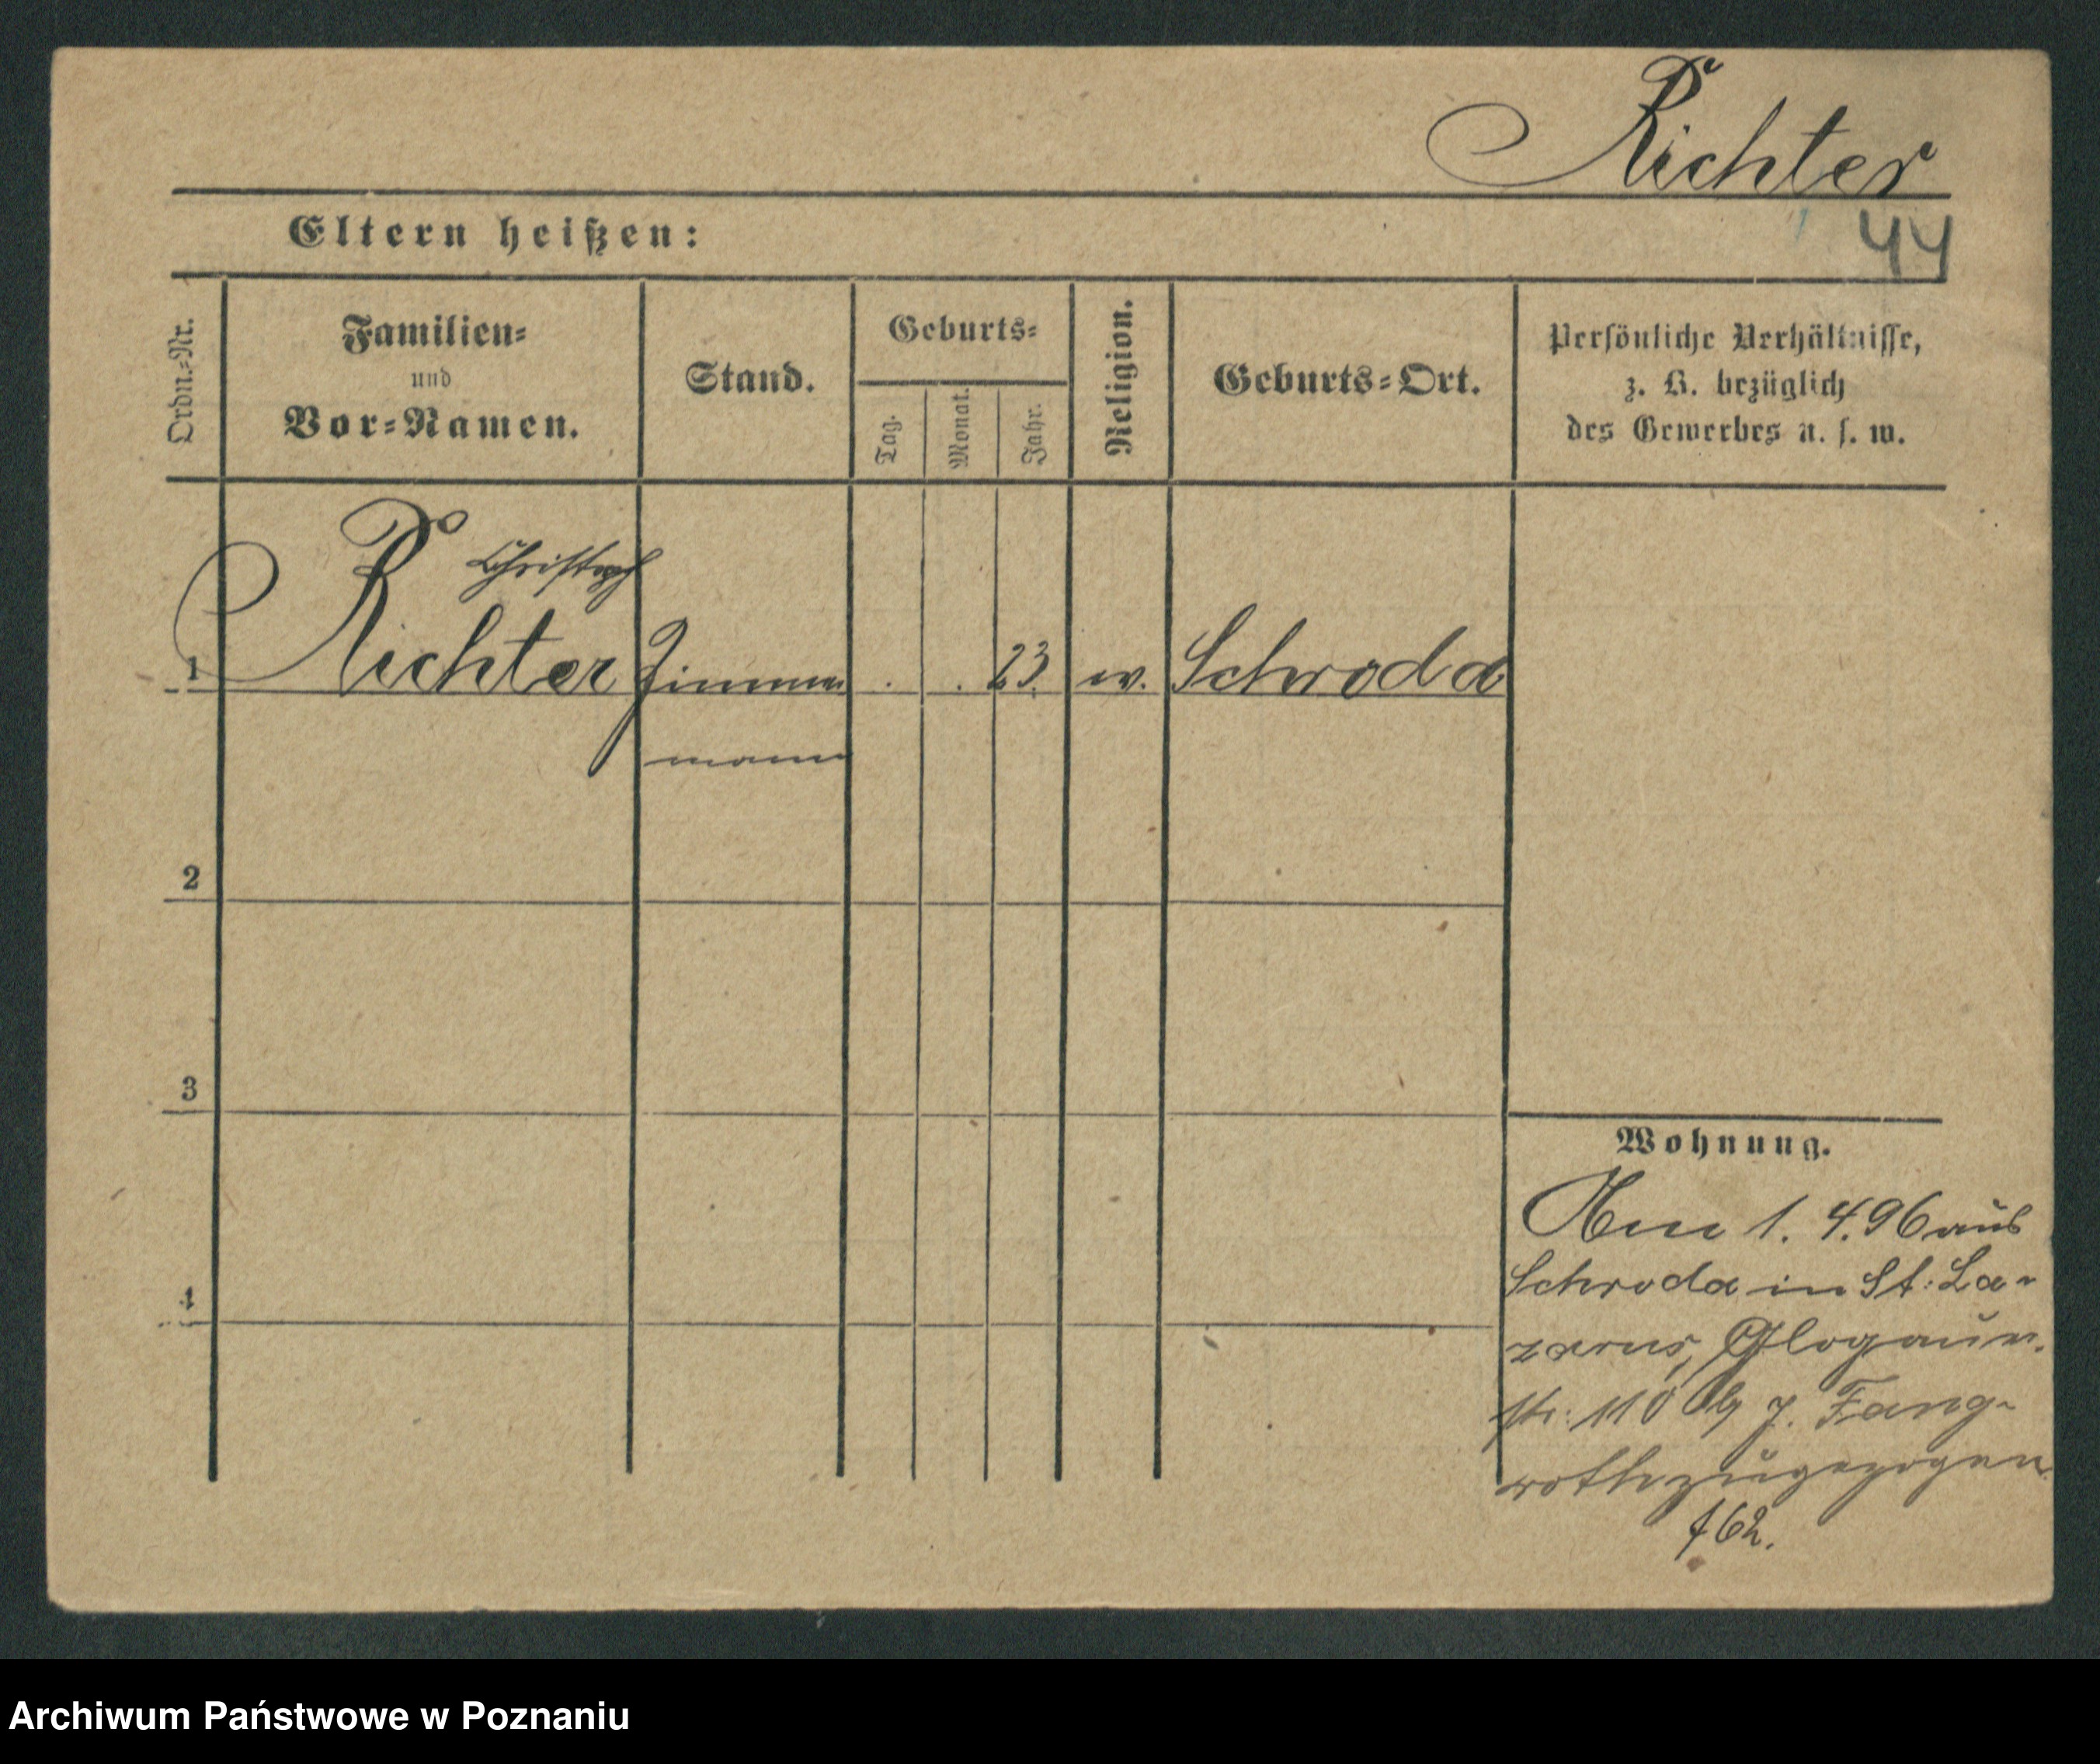 Richter
44
Eltern heißen:
Ordn.=Nr.
Familien=
und
Vor=Namen.
Stand.
Geburts=
Tag.
Monat.
Jahr.
Religion.
Geburts=Ort.
Persönliche Verhältnisse,
z. B. bezüglich
des Gewerbes u. s. w.
Christoph
1 Richter Zimmer . . 23. ev. Schroda
mann
2
3
4
Wohnung.
Am 1. 4. 96 aus
Schroda in St: La-
zarus, Glogauer
str: 110 b J. Fang-
rothzugezogen
162.
Archiwum Państwowe w Poznaniu